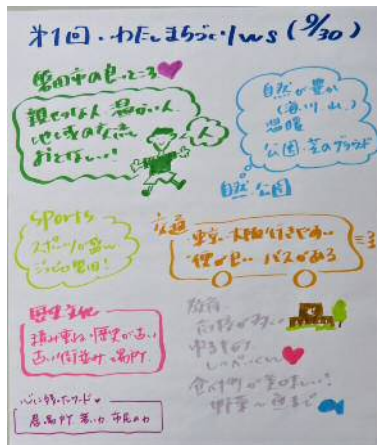 第1回・わたしまちづくりws (9/30)
磐田市の良いところ
親せつな人 温かい人
地域の交流
おとなしい!
人
自然が豊か
(海 川 山)
温暖
公園・芝のグラウンド
自然 公園
sports
スポーツが盛ん
ジュビロ磐田!
交通
東京・大阪 行きやすい
便が良い バスがある
歴史文化
積み重ね・歴史が古い
古い街並み・見付
教育
ゆるキャラ
しっぺいくん
食べ物が美味しい!
野菜〜魚まで
心に残ったワード
居場所 若い力 市民の力